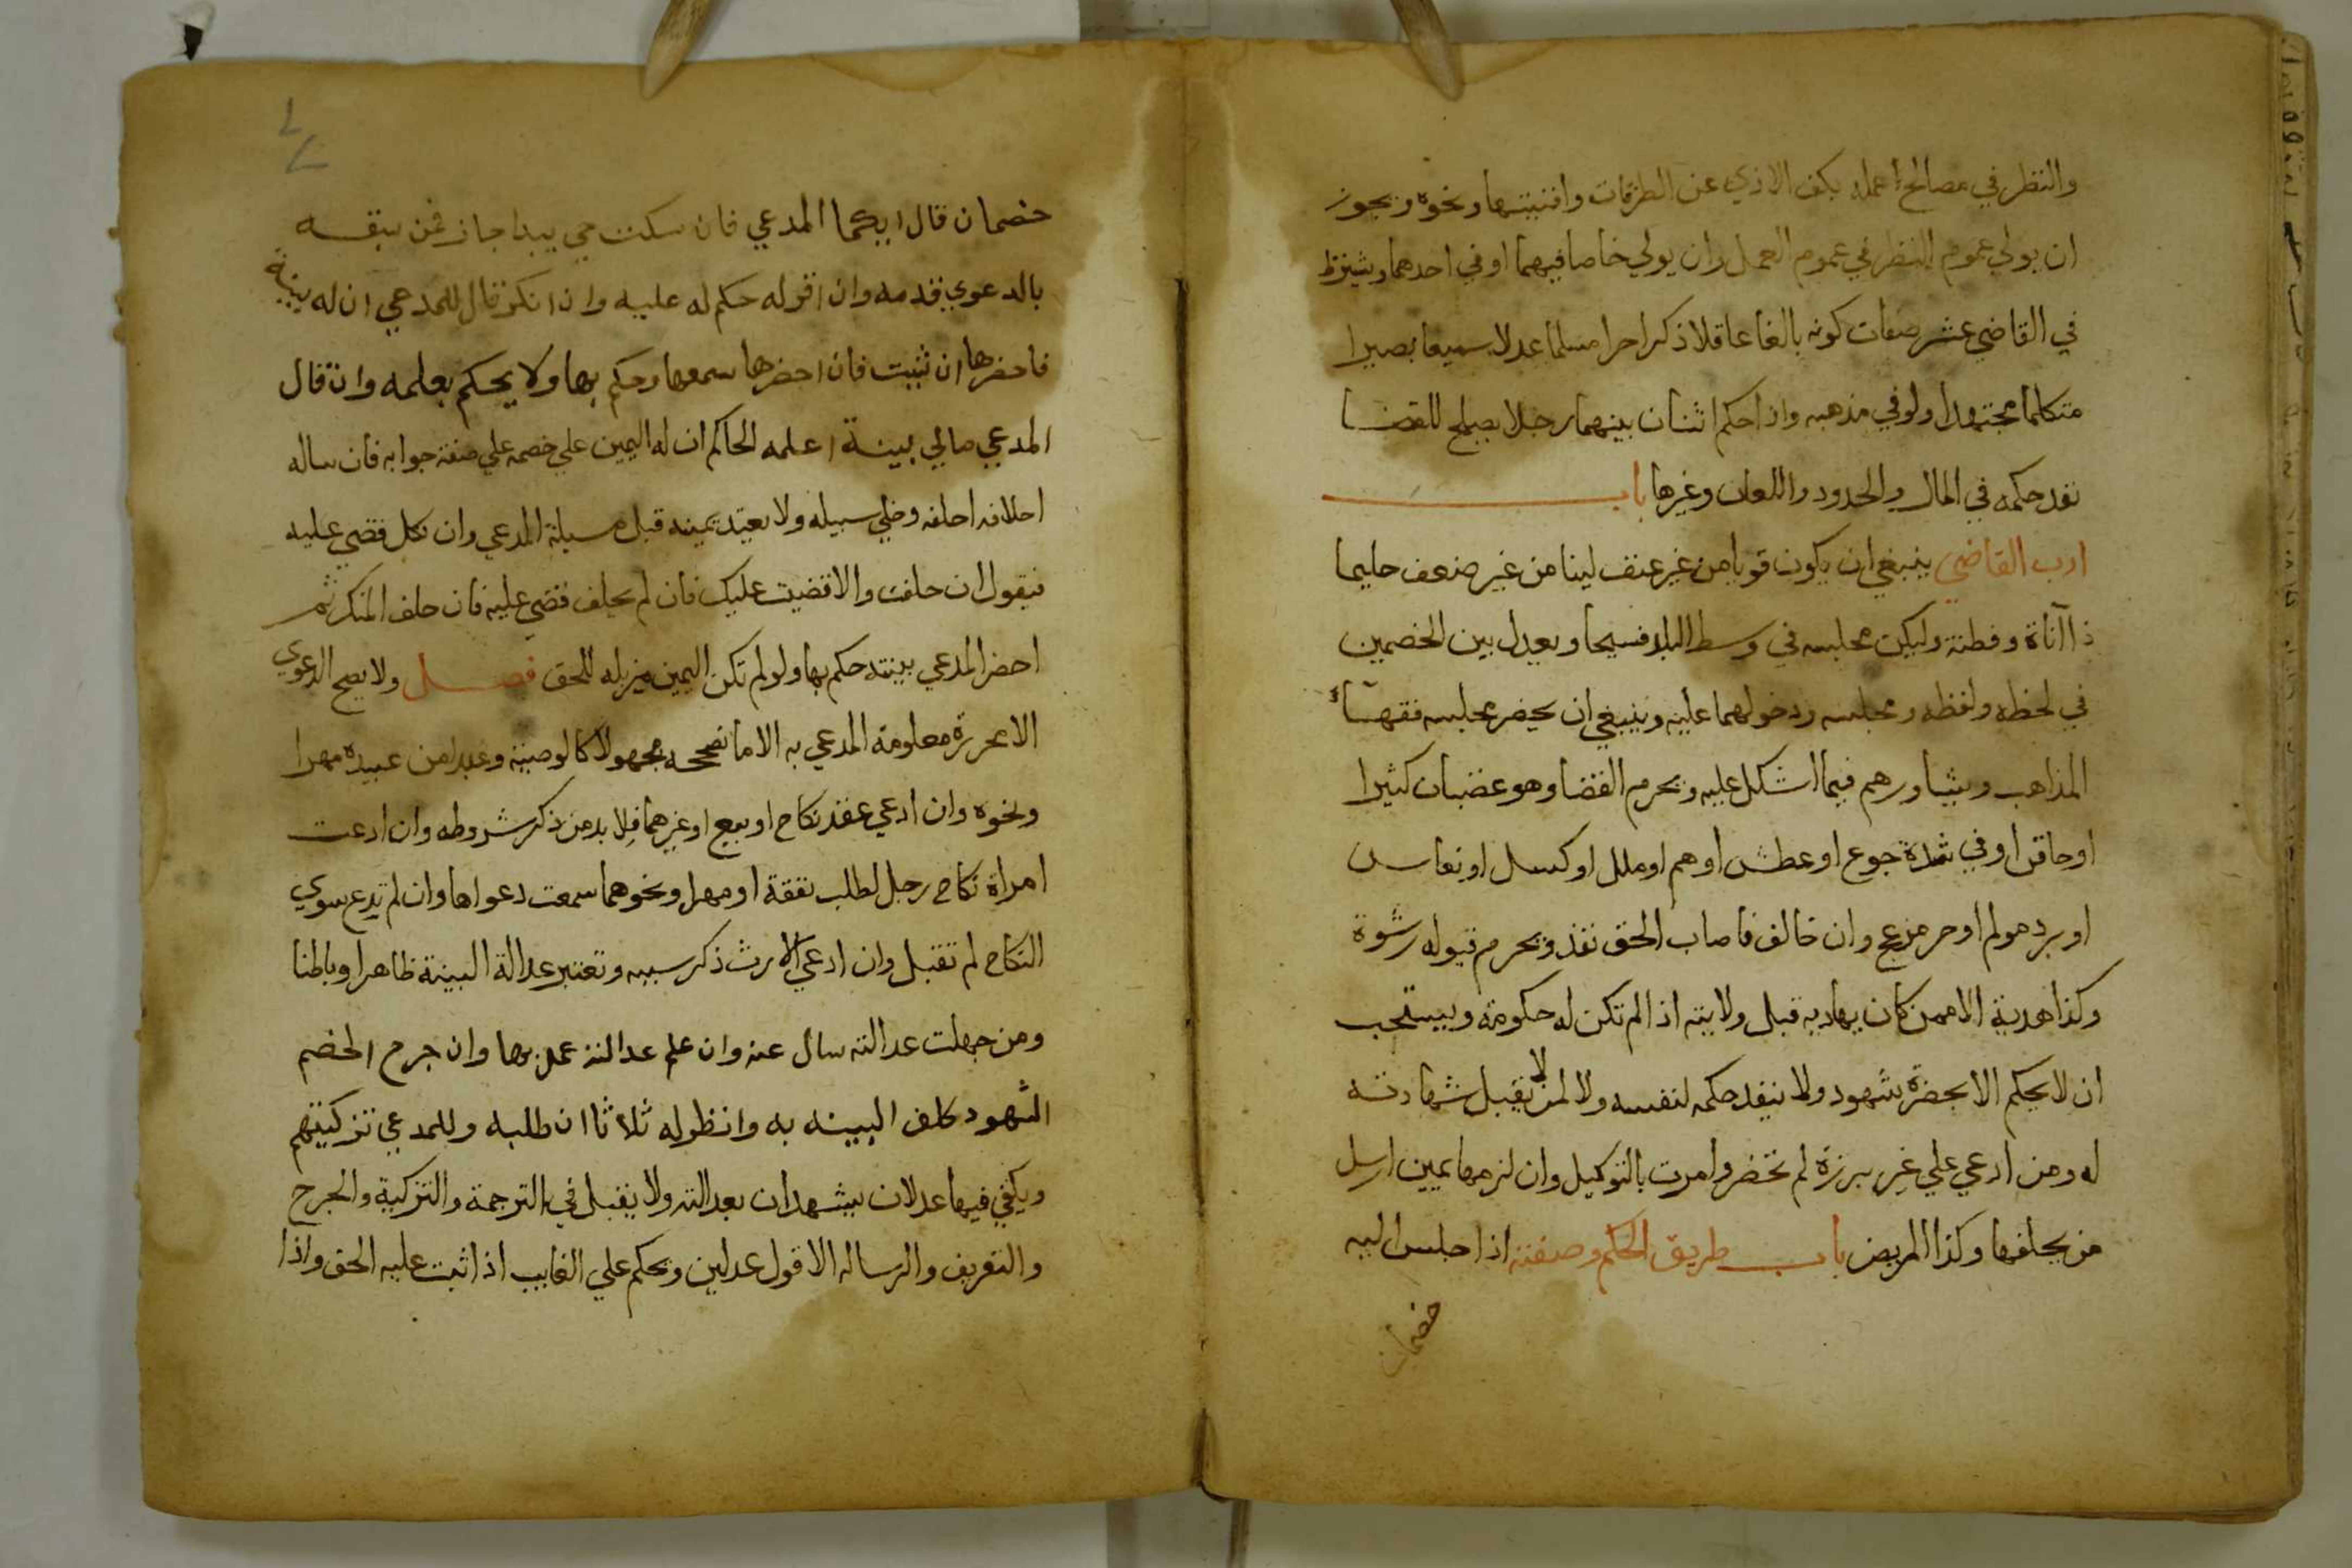 والنظر في مصالح عمله بكف الاذي عن الطرقات وافنيتها ونحوه ويجوز
ان يولي عموم النظر في عموم العمل وان يولي خاصا فيهما او في احدهما ويشترط
في القاضي عشر صفات كونه بالغا عاقلا ذكرا حرا مسلما عدلا سميعا بصيرا
متكلما مجتهدا ولو في مذهبه واذا حكم اثنان بينهما رجلا يصلح للقضا
نفد حكمه في المال والحدود واللعان وغيرها باب
ادب القاضي ينبغي ان يكون قويا من غير عنف لينا من غير ضعف حليما
ذا آناة وفطنة وليكن مجلسه في وسط البلد فسيحا ويعدل بين الخصمين
في لحظه ولفظه ومجلسه ودخولهما عليه وينبغي ان يحضر مجلسه فقهآء
المذاهب ويشاورهم فيما اشكل عليه ويحرم القضا وهو غضبان كثيرا
او حاقن او في شدة جوع او عطش او هم او ملل او كسل او نعاس
او برد مولم او حر مزعج وان خالف فاصاب الحق نفذ ويحرم قبوله رشوة
وكذا هدية الا ممن كان يهاديه قبل ولايته اذا لم تكن له حكومة ويستحب
ان لا يحكم الا بحضرة شهود ولا ينفد حكمه لنفسه ولا لمن لا تقبل شهادته
له ومن ادعي علي غير برزة لم تحضر وامرت بالتوكيل وان لزمها يمين ارسل
من يحلفها وكذا المريض باب طريق الحكم وصفته اذا جلس اليه
خصمان
خصمان قال ايكما المدعي فان سكت حي يبدا جاز فمن سبقه
بالدعوي قدمه وان اقر له حكم له عليه وان انكر قال للمدعي ان له بينة
فاحضرها ان شيت فان احضرها سمعها وحكم بها ولا يحكم بعلمه وان قال
المدعي مالي بينة اعلمه الحاكم ان له اليمين علي خصمه علي صفة جوابه فان ساله
احلافه احلفه وخلي سبيله ولا يعتد بيمينه قبل مسيلة المدعي وان نكل قضي عليه
فيقول ان حلفت والا قضيت عليك فان لم يحلف قضي عليه فان حلف المنكر ثم
احضر المدعي بينته حكم بها ولو لم تكن اليمين مزيله للحق فصل ولا يصح الدعوي
الا محررة معلومة المدعي به الا ما نصححه مجهولا كالوصية وعبد من عبيده مهرا
ونحوه وان ادعي عقد نكاح او بيع او غيرهما فلا بد من ذكر شروطه وان ادعت
امراة نكاح رجل لطلب نفقة او مهر او نحوهما سمعت دعواها وان لم تدع سوي
النكاح لم تقبل وان ادعي الارث ذكر سببه وتعتبر عدالة البينة ظاهرا وباطنا
ومن جهلت عدالته سال عنه وان علم عدالته عمل بها وان جرح الخصم
الشهود كلف البينه به وانظر له ثلاثا ان طلبه وللمدعي تزكيتهم
ويكفي فيها عدلان يشهدان بعدالته ولا يقبل في الترجمة والتزكية والجرح
والتعريف والرساله الا قول عدلين ويحكم علي الغايب اذا ثبت عليه الحق واذا